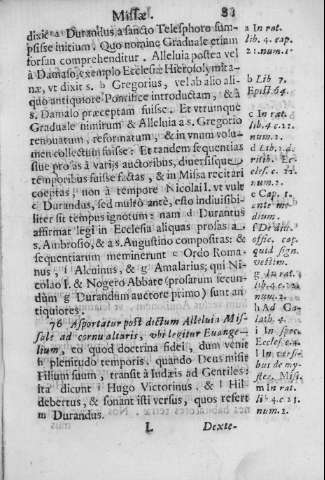 Missæ. 81
dixit a Durandus, a sancto Telesphoro sum-
psisse initium. Quo nomine Graduale etiam
forsan comprehenditur. Alleluia postea vel
à Damaso, exemplo Ecclesiæ Hierosolymita-
næ, vt dixit s. b Gregorius, vel ab alio ali-
quo antiquiore Pontifice introductam, & à
s. Damaso præceptam fuisse. Et vtrumque
Graduale nimirum & Alleluia a s. Gregorio
renouatum, reformatum, & in vnum volu-
men collectum fuisse: Et tandem sequentias
siue prosas à varijs auctoribus, diuersisque
temporibus fuisse factas, & in Missa recitari
cœptas; non à tempore Nicolai I. vt vule
c Durandus, sed multo antè, etsi indiuisibi-
liter sit tempus ignotum: nam d Durantus
affirmat legi in Ecclesia aliquas prosas a
s. Ambrosio, & a s. Augustino compositas: &
sequentiarum meminerunt e Ordo Roma-
nus, f Alcuinus, & g Amalarius; qui Ni-
colao I. & Nogero Abbate (prosarum secun-
dum g Durandum auctore primo) sunt an-
tiquiores.
76 Asportatur post dictum Alleluia Mis-
sale ad cornu altaris, vbi legitur Euange-
lium, eo quod doctrina fidei, dum venit
h plenitudo temporis, quando Deus misit
Filium suum, transit à Iudæis ad Gentiles:
Ita dicunt i Hugo Victorinus, & l Hil-
debertus, & sonant isti versus, quos refert
m Durandus.
L Dexte-
a In rat.
lib. 4. cap.
21. num. 1.
b Lib 7.
Epist. 64.
c In rat.
lib. 4. c. 22.
num. 2.
d Lib. 2. d.
ritib. Ec-
clef. c. 22.
num. 2.
e Cap. 5.
ante me-
dium.
f De diu.
offic. cap.
quid sign.
vestim.
g In rat.
lib. 4. c. 22.
num. 2.
h Ad Ga-
lath. 4.
i In spec.
Eccles. c. 4.
l In versi-
bus de my-
ster. Miss.
m In rat.
lib. 4. c. 23.
num. 2.